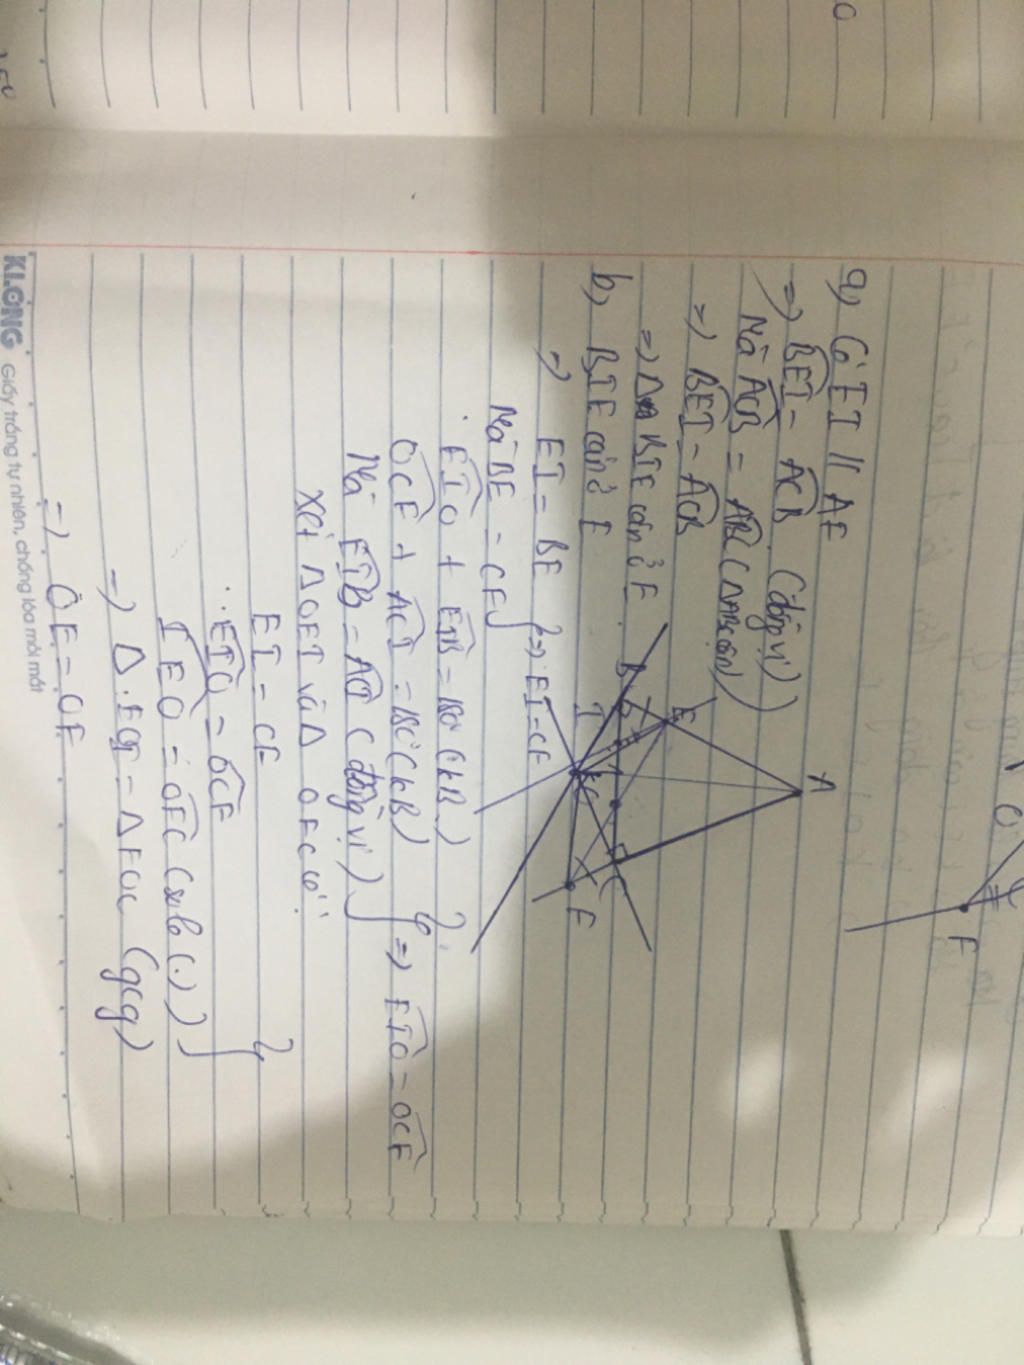 a, Có EI // AF
=> BEI = ACB (đồng vị)
Mà ACB = ABC (ΔABC cân)
=> BEI = ACB
=> Δ BIE cân ở E
b, BIE cân ở E
=> EI = BE
Mà BE = CF } => EI = CF
EIO + EIB = 180° (kB)
OCF + ACI = 180° (kB)
Mà EIB = ACI (đồng vị) } => EIO = OCF
Xét Δ OEI và Δ OFC có:
EI = CF
EIO = OCF
IEO = OFC (sole (.))
=> Δ EOI = Δ FOC (gcg)
=> OE = OF
A
E
B
I
O
C
F
O
F
KLONG Giấy trắng tự nhiên, chống lóa mỏi mắt